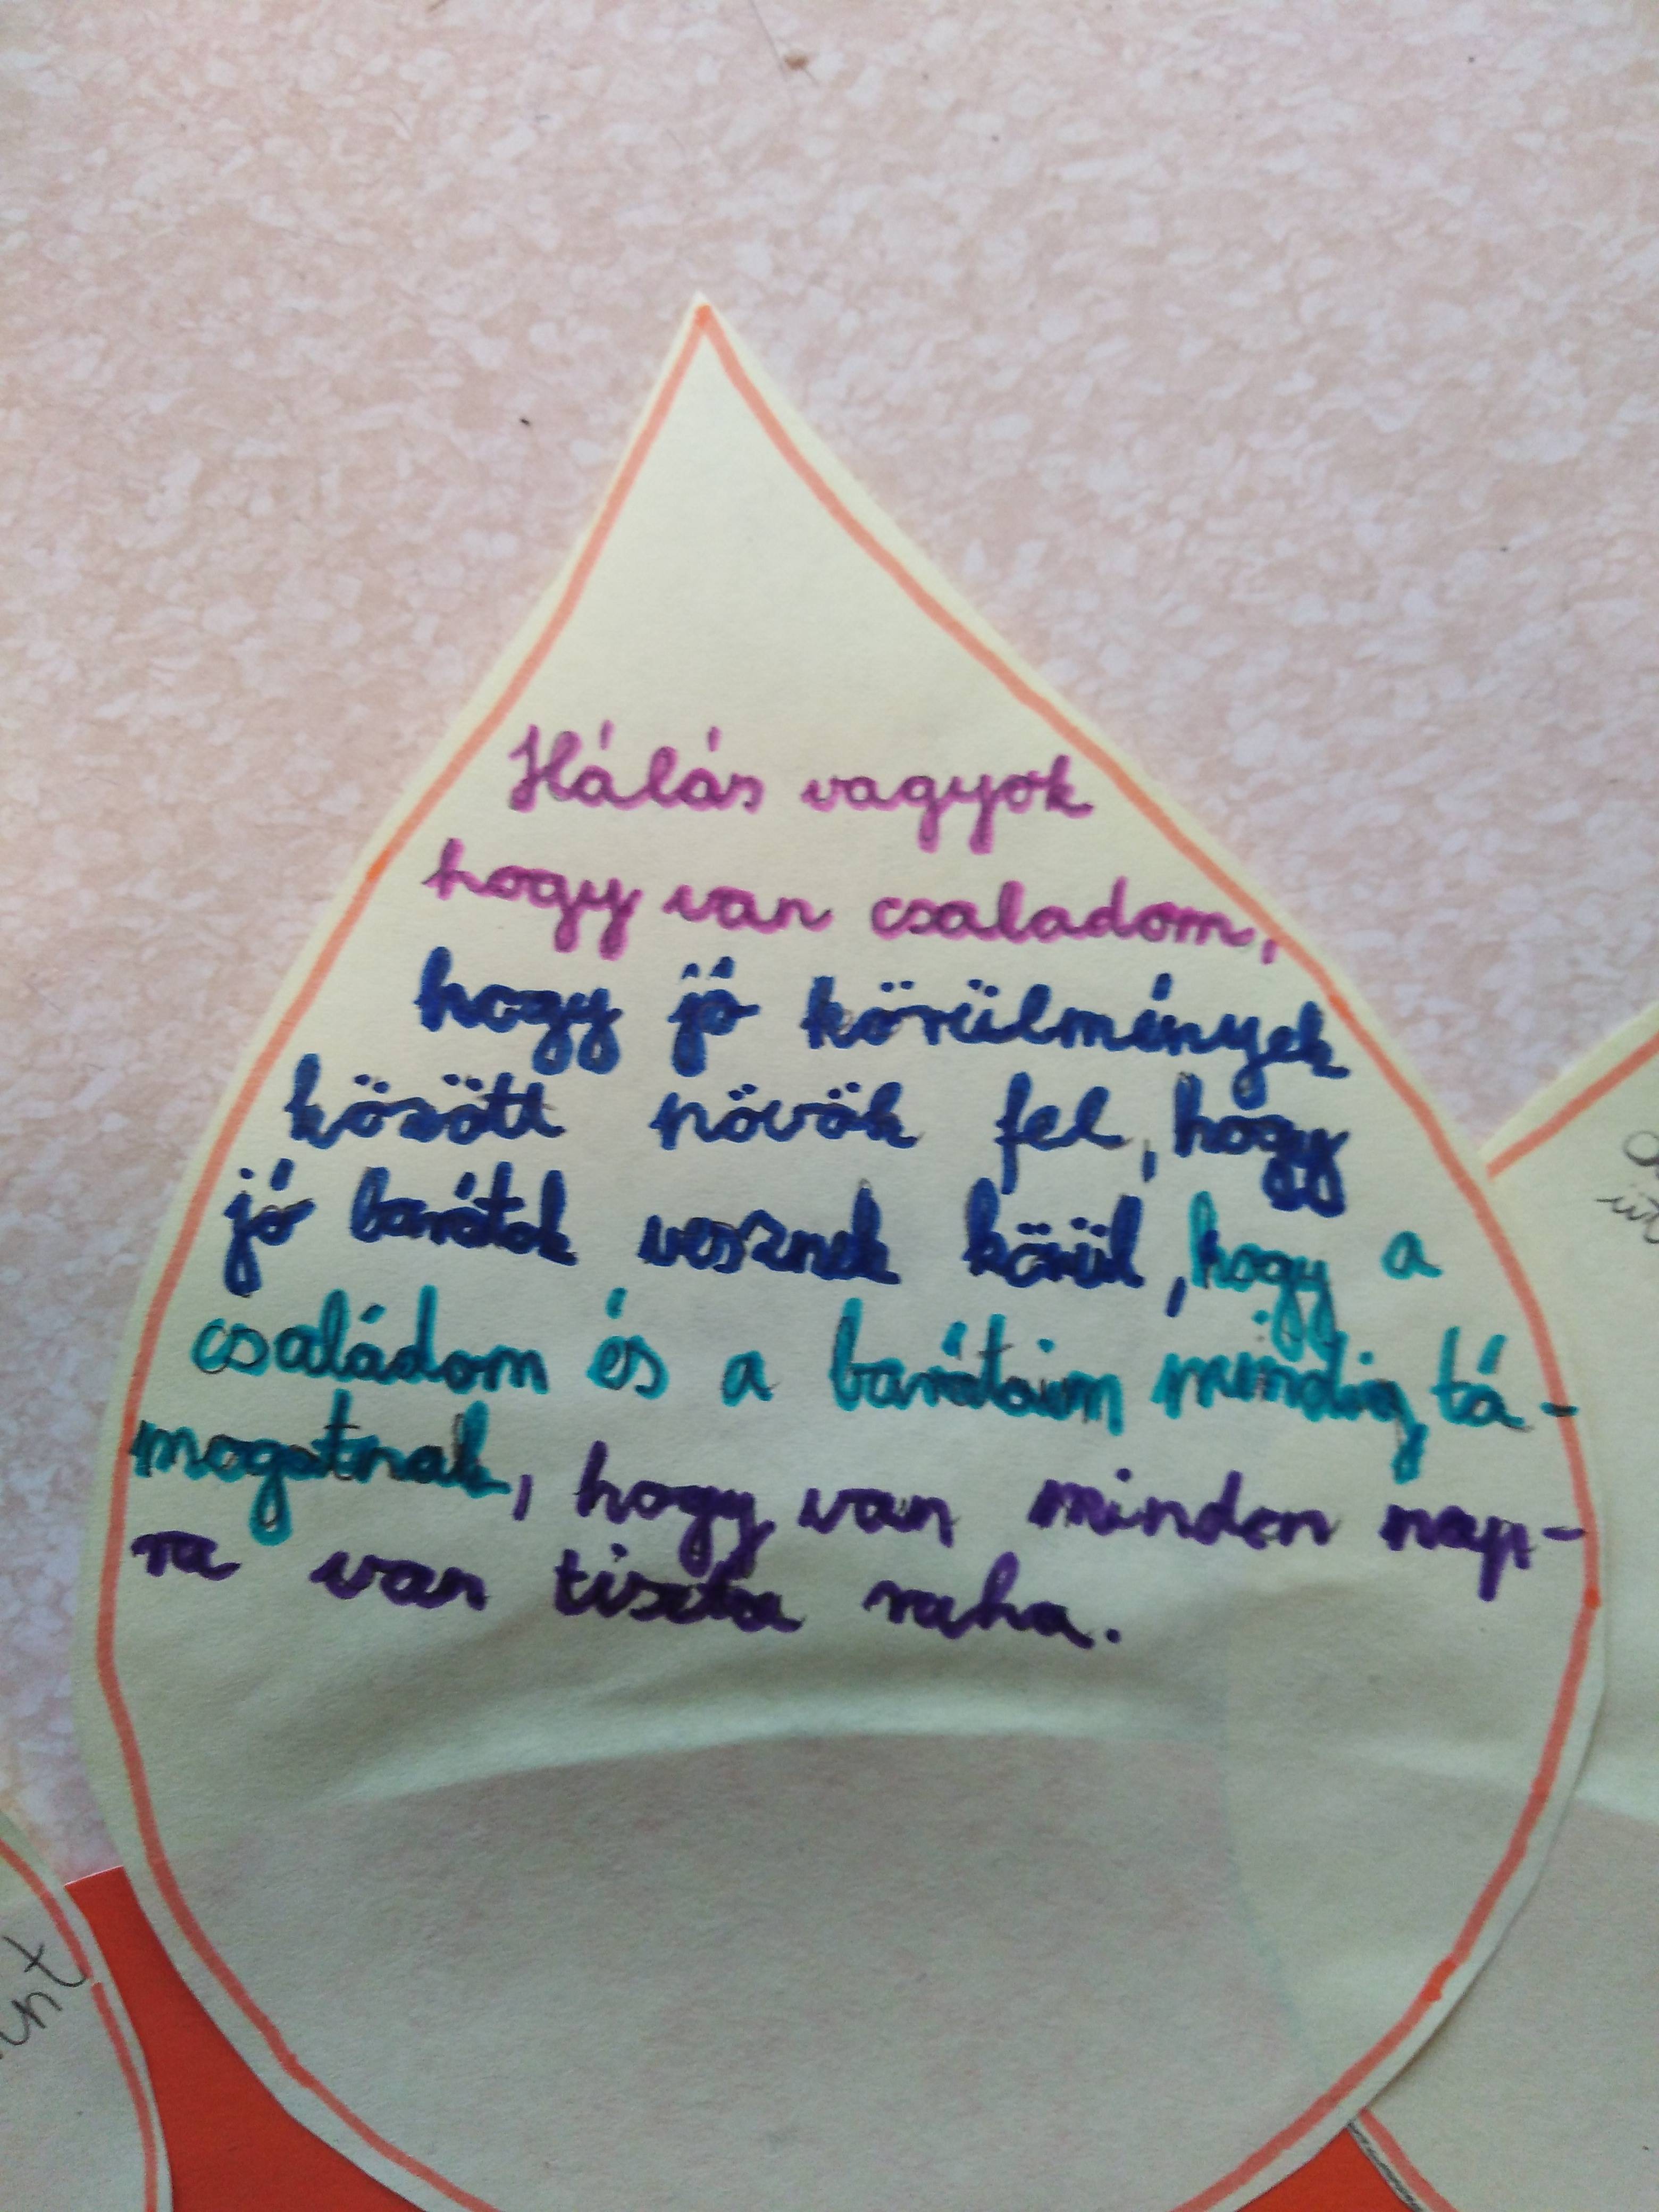 Hálás vagyok
hogy van csaladom,
hogy jó körülmények
között növök fel, hogy
jó barátok vesznek körül, hogy a
családom és a barátaim mindig tá-
mogatnak, hogy van minden nap-
ra van tiszta ruha.